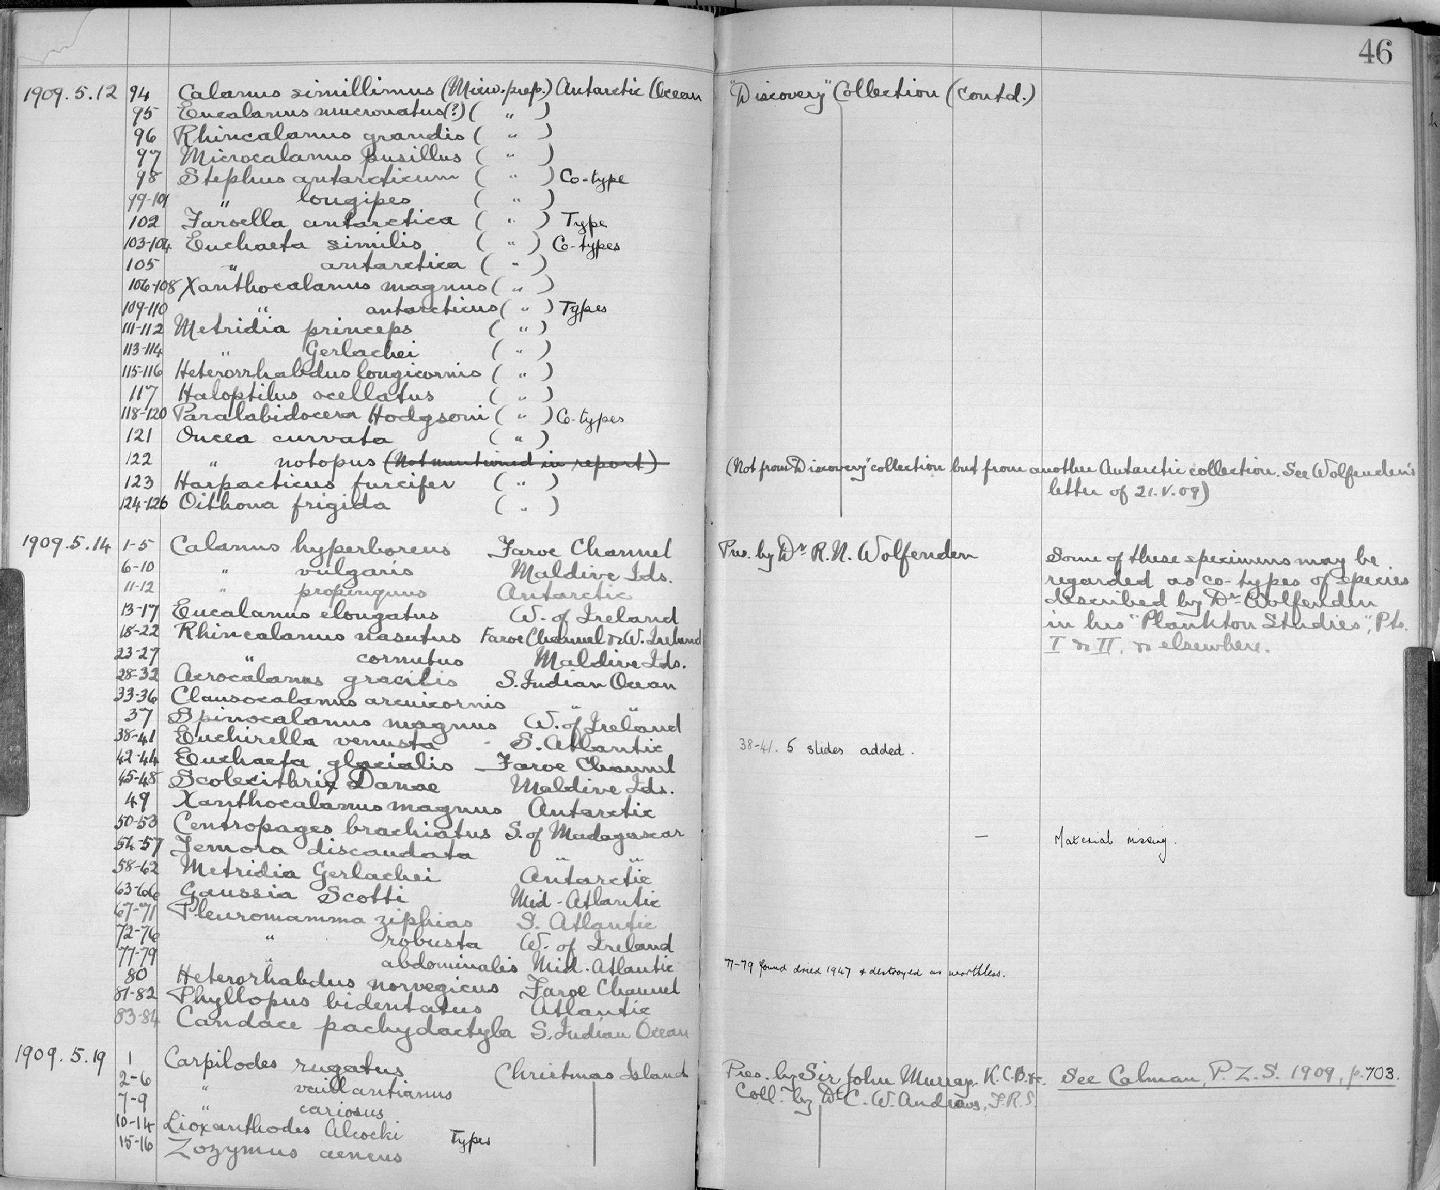 46
1909.5.12 94 Calanus simillimus (Micro. prep.) Antarctic Ocean "Discovery" Collection (contd.)
95 Eucalanus mucronatus (?) ( " )
96 Rhincalanus grandis ( " )
97 Microcalanus pusillus ( " )
98 Stephus antarcticum ( " ) Co-type
99-101 " longipes ( " )
102 Faroella antarctica ( " ) Type
103-104 Euchaeta similis ( " ) Co-types
105 " antarctica ( " )
106-108 Xanthocalanus magnus ( " )
109-110 " antarcticus ( " ) Types
111-112 Metridia princeps ( " )
113-114 " Gerlachei ( " )
115-116 Heterorrhabdus longicornis ( " )
117 Haloptilus ocellatus ( " )
118-120 Paralabidocera Hodgsoni ( " ) Co-types
121 Oncea curvata ( " )
122 " notopus (Not mentioned in report) (Not from "Discovery" collection but from another Antarctic collection. See Wolfenden's
letter of 21.V.09)
123 Harpacticus furcifer ( " )
124-126 Oithona frigida ( " )
1909.5.14 1-5 Calanus hyperboreus Faroe Channel Pres. by Dr R. N. Wolfenden Some of these specimens may be
6-10 " vulgaris Maldive Ids. regarded as co-types of species
11-12 " propinquus Antarctic described by Dr Wolfenden
13-17 Eucalanus elongatus W. of Ireland in his "Plankton Studies", Pts.
18-22 Rhincalanus nasutus Faroe Channel & W. Ireland I & II, & elsewhere.
23-27 " cornutus Maldive Ids.
28-32 Acrocalanus gracilis S. Indian Ocean
33-36 Clausocalanus arcuicornis " "
37 Spinocalanus magnus W. of Ireland
38-41 Euchirella venusta S. Atlantic 38-41. 5 slides added.
42-44 Euchaeta glacialis Faroe Channel
45-48 Scolecithrix Danae Maldive Ids.
49 Xanthocalanus magnus Antarctic
50-53 Centropages brachiatus S. of Madagascar — Material missing.
54-57 Temora discaudata " "
58-62 Metridia Gerlachei Antarctic
63-66 Gaussia Scotti Mid-Atlantic
67-71 Pleuromamma ziphias S. Atlantic
72-76 " robusta W. of Ireland
77-79 " abdominalis Mid-Atlantic 77-79 found dried 1947 & destroyed as worthless.
80 Heterorhabdus norvegicus Faroe Channel
81-82 Phyllopus bidentatus Atlantic
83-84 Candace pachydactyla S. Indian Ocean
1909.5.19 1 Carpilodes rugatus Christmas Island Pres. by Sir John Murray. K.C.B. &c. See Calman, P.Z.S. 1909, p. 703.
2-6 " vaillantianus Coll. by Dr C. W. Andrews, F.R.S.
7-9 " cariosus
10-14 Lioxanthodes Alcocki Types
15-16 Zozymus aeneus